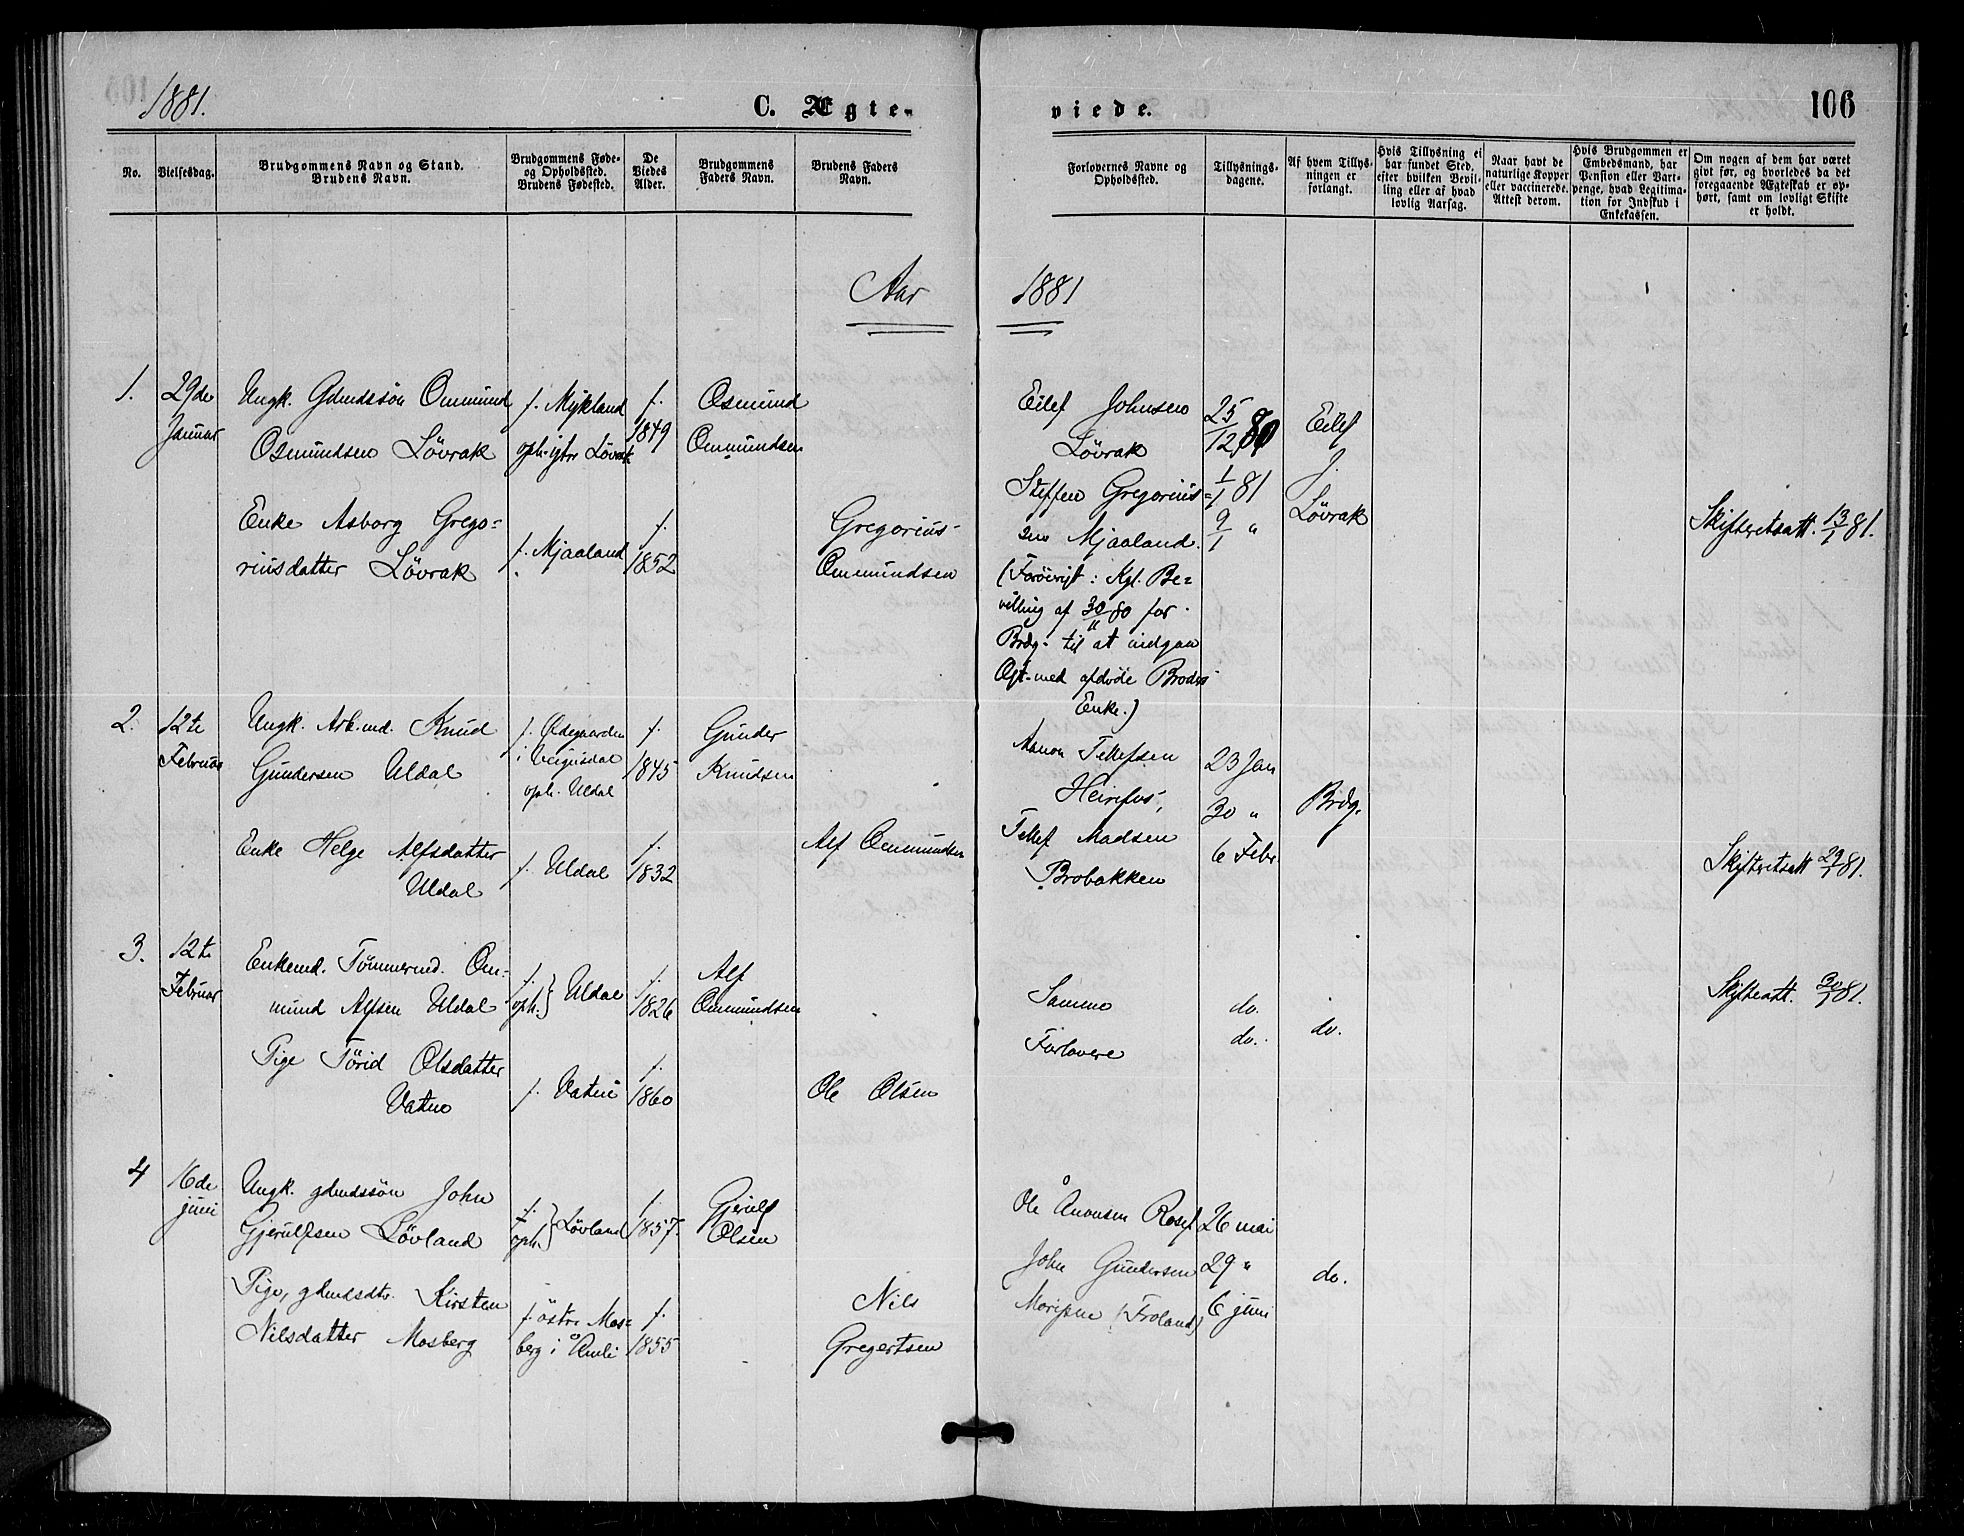 1881.
C. Ægte-
viede.
106
No.
Vielsesdag.
Brudgommens Navn og Stand.
Brudens Navn.
Brudgommens Føde-
og Opholdssted.
Brudens Fødested.
De
Viedes
Alder.
Brudgommens
Faders Navn.
Brudens Faders
Navn.
Forlovernes Navne og
Opholdssted.
Tillysnings-
dagene.
Af hvem Tillys-
ningen er
forlangt.
Hvis Tillysning ei
har fundet Sted,
efter hvilken Bevil-
ling eller af hvad
lovlig Aarsag.
Naar havt de
naturlige Kopper
eller vaccinerede.
Attest derom.
Hvis Brudgommen er
Embedsmand, har
Pension eller Vart-
penge, hvad Legitima-
tion for Indskud i
Enkekassen.
Om nogen af dem har været
givt før, og hvorledes da det
foregaaende Ægteskab er op-
hørt, samt om lovligt Skifte
er holdt.
Aar 1881
1.
29de
Januar
Ungk. Gdmdssön Ommund
Osmundsen Lövrak
f. Mykland
oph. Lövrak
f.
1849
Osmund
Ommundsen
Enke Asborg Grego=
riusdatter Lövrak
f. Mjaaland
f.
1852
Gregorius
Ommundsen
Eilef Johnsen
Lövrak
Steffen Gregorius=
sen Mjaaland.
(Forövrigt: Kgl. Be=
villing af 30/11 80 for
Brdg. til at indgaa
Ægt. med afdöde Broders
Enke.)
25/12 80
1/1 81
9/1 "
Eilef
J.
Lövrak
Skifteretsatt. 13/1 81.
2.
12te
Februar
Ungk. Arb.md. Knud
Gundersen Uldal
f. Ödegaarden
i Vegusdal
oph. Uldal
f.
1845
Gunder
Knudsen
Enke Helge Alfsdatter
Uldal
f. Uldal
f.
1832
Alf Ommundsen
Aanon Tellefsen
Heirefos,
Tellef Madsen
Brobakken
23 Jan
30 "
6 Febr.
Brdg.
Skifteretsatt 29/1 81.
3.
12te
Februar
Enkemd. Tömmermd. Om-
mund Alfsen Uldal
f.
oph. } Uldal
f.
1826
Alf
Ommundsen
Pige Törid Olsdatter
Vatne
f. Vatne
f.
1860
Ole Olsen
Samme
Forlovere
do.
do.
do.
Skifteatt. 30/1 81.
4
16de
juni
Ungk. gdmdssön John
Gjerulfsen Lövland
f.
oph. } Lövland
f.
1857.
Gjerulf
Olsen
Pige, gdmdsdtr. Kirsten
Nilsdatter Mosberg
f. östre Mos=
berg i Åmli
f.
1855
Nils
Gregertsen
Ole Ånonsen Rosef
John Gundersen
(Froland)
26 mai
29 "
6 juni
do.